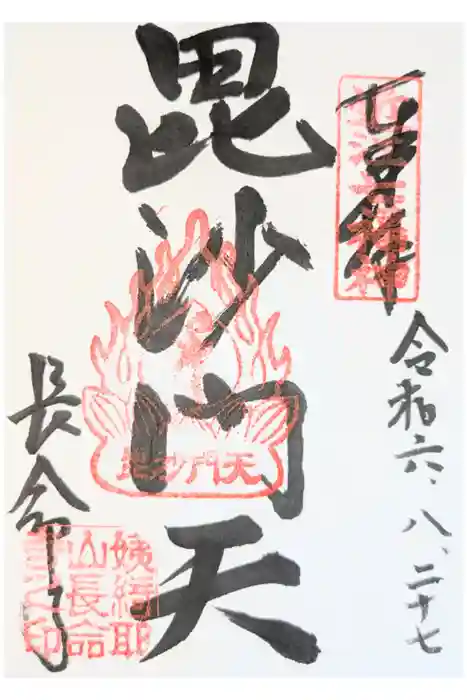 七福神
近江七福神
令和六、八、二十七
毘沙門天
毘沙門天
長命寺
姨綺耶
山長命
寺之印